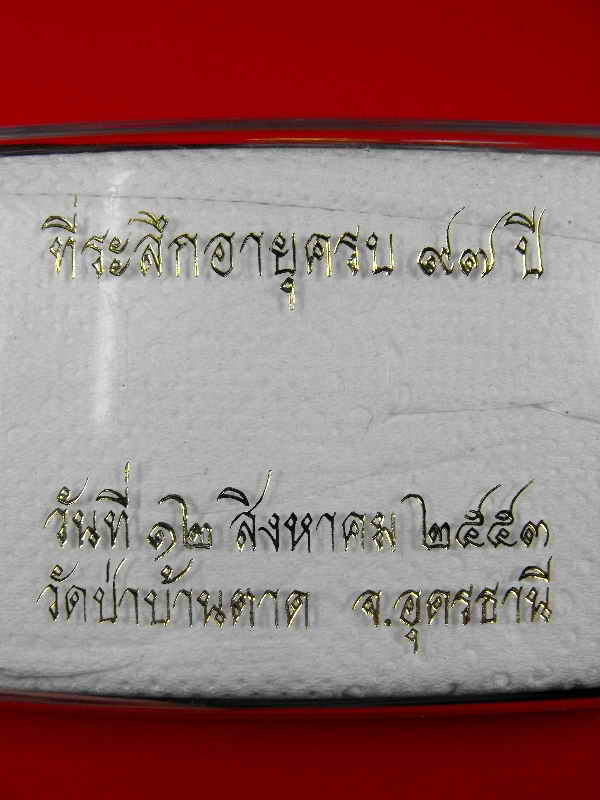 ที่ระลึกอายุครบ ๙๗ ปี
วันที่ ๑๒ สิงหาคม ๒๕๕๓
วัดป่าบ้านตาด จ.อุดรธานี